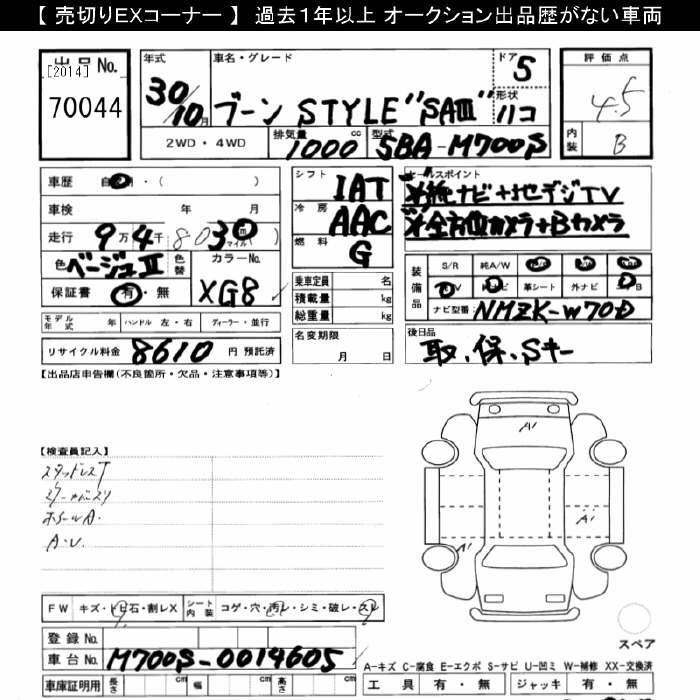 【 売切りEXコーナー 】 過去1年以上 オークション出品歴がない車両
出品No.
[2014]
70044
年式
30/10月
車名・グレード
ブーン STYLE "SAⅢ"
ドア 5
形状 ハコ
評価点
4.5
内装 B
2WD・4WD
排気量 1000 cc
型式 5BA-M700S
車歴 自・( )
車検 年 月
走行 9万4千8030 km マイル( )
色 ベージュⅡ
色替
カラーNo. XG8
保証書 有・無
モデル年式 年 ハンドル 左・右 ディーラー・並行
リサイクル料金 8610 円 預託済
シフト IAT
冷房 AAC
燃料 G
乗車定員 名
積載量 kg
総重量 kg
名変期限
月 日
セールスポイント
純ナビ+地デジTV
全方位カメラ+Bカメラ
装備品
S/R 純A/W
革シート 外ナビ
ナビ型番 NMZK-W70D
後日品
取.保.Sキー
【出品店申告欄(不良箇所・欠品・注意事項等)】
【検査員記入】
スタッドレスT
ホイールA.
A.U.
A1
A1
A1
FW キズ・トビ石・割レX
シート内装 コゲ・穴・汚レ・シミ・破レ・スレ
登録 No.
車台 No. M700S-0014605
車庫証明用 長さ cm 幅 cm 高さ cm
スペア
A-キズ C-腐食 E-エクボ S-サビ U-凹ミ W-補修 XX-交換済
工具 有・無 ジャッキ 有・無